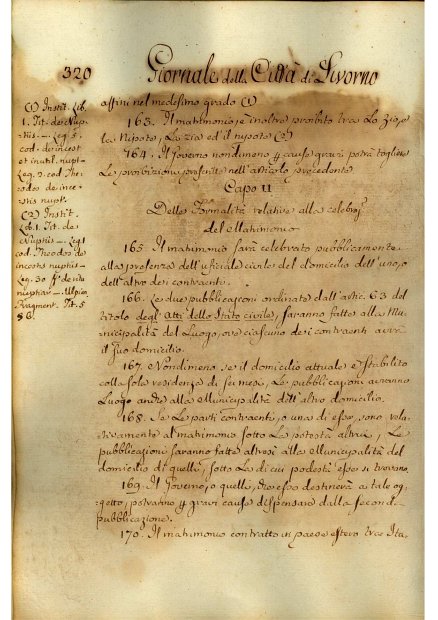 320 Giornale della Città di Livorno
(1) Instit. Lib.
1. Tit. de Nup-
tiis — Leg. 5.
cod. de incest
et inutil. nupt—
Leg. 2. cod. The-
odos de ince-
stis nupt.
(2) Instit.
Lib. 1. Tit. de
Nuptiis — Leg 1
cod. Theodos de
incestis nuptiis—
Leg. 30 ff de ritu
nuptiar — Ulpian
Fragment. Tit. 5
§ 6.
affini nel medesimo grado (1)
163. Il matrimonio, è inoltre proibito tra Lo zio, e
la Nipote, La zia ed il nipote (2)
164. Il Governo nondimeno p cause gravi potrà togliere
Le proibizioni prescritte nell'articolo precedente
Capo II
Delle Formalità relative alla celebraz
del Matrimonio
165. Il matrimonio sarà celebrato pubblicamente
alla presenza dell'ufiziale civile del domicilio dell'uno, o
dell'altro dei contraenti.
166. Le due pubblicazioni ordinate dall'artic. 63 del
titolo degli Atti dello Stato civile, saranno fatte alla Mu-
nicipalità del Luogo, ove ciascuno dei contraenti avrà
il suo domicilio.
167. Nondimeno, se il domicilio attuale è stabilito
colla sola residenza di sei mesi, Le pubblicazioni avranno
Luogo anche alla Municipalità dell'altro domicilio.
168. Se Le parti contraenti, o una di esse, sono rela-
tivamente al matrimonio sotto La potestà altrui, Le
pubblicazioni saranno fatte altresì alla Municipalità del
domicilio di quelli, sotto La di cui podestà esse si trovano.
169. Il Governo, o quelli, che esso destinerà a tale og-
getto, potranno p gravi cause dispensare dalla seconda
pubblicazione.
170. Il matrimonio contratto in paese estero tra Ita-